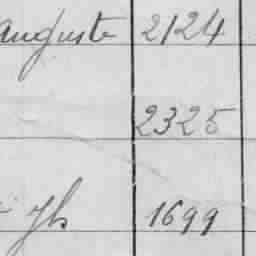 Auguste 2124
2325
Jh 1699